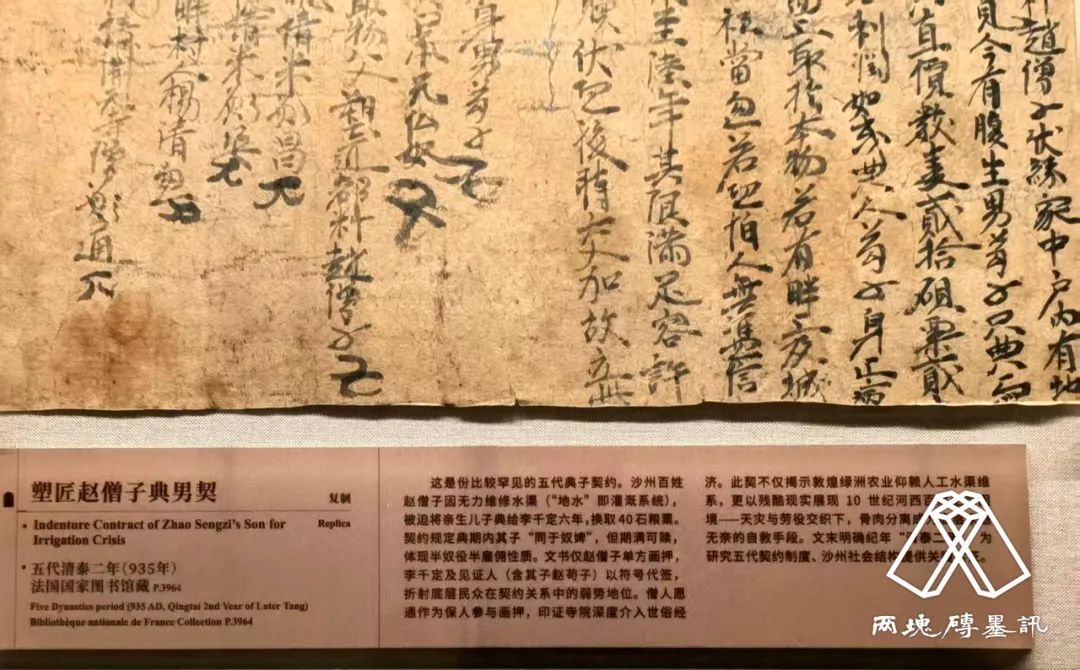 趙僧子伏緣家中戶內有地
見今有腹生男苟子只典與
直價數麦貳拾碩粟貳
利潤如或典人苟子身上病
面上取於本物若有畔上及城
社當若怕人無憑信
至陸年其限滿足容許
後時交加故立此
身男苟子
兄佛奴
取物父塑匠都料趙僧子
米愿昌
米愿
畔村人楊清忽
開元寺僧愿通
塑匠赵僧子典男契
复制
Indenture Contract of Zhao Sengzi's Son for
Irrigation Crisis
Replica
五代清泰二年(935年)
法国国家图书馆藏 P.3964
Five Dynasties period (935 AD, Qingtai 2nd Year of Later Tang)
Bibliothèque nationale de France Collection P.3964
这是份比较罕见的五代典子契约。沙州百姓
赵僧子因无力维修水渠(“地水”即灌溉系统),
被迫将亲生儿子典给李千定六年,换取40石粮粟。
契约规定典期内其子“同于奴婢”,但期满可赎,
体现半奴役半雇佣性质。文书仅赵僧子单方画押,
李千定及见证人(含其子赵苟子)以符号代签,
折射底层民众在契约关系中的弱势地位。僧人愿
通作为保人参与画押,印证寺院深度介入世俗经
济。此契不仅揭示敦煌绿洲农业仰赖人工水渠维
系,更以残酷现实展现 10 世纪河西
境——天灾与劳役交织下,骨肉分离成
无奈的自救手段。文末明确纪年“清泰二 为
研究五代契约制度、沙州社会结构提供关
两塊磚墨訊